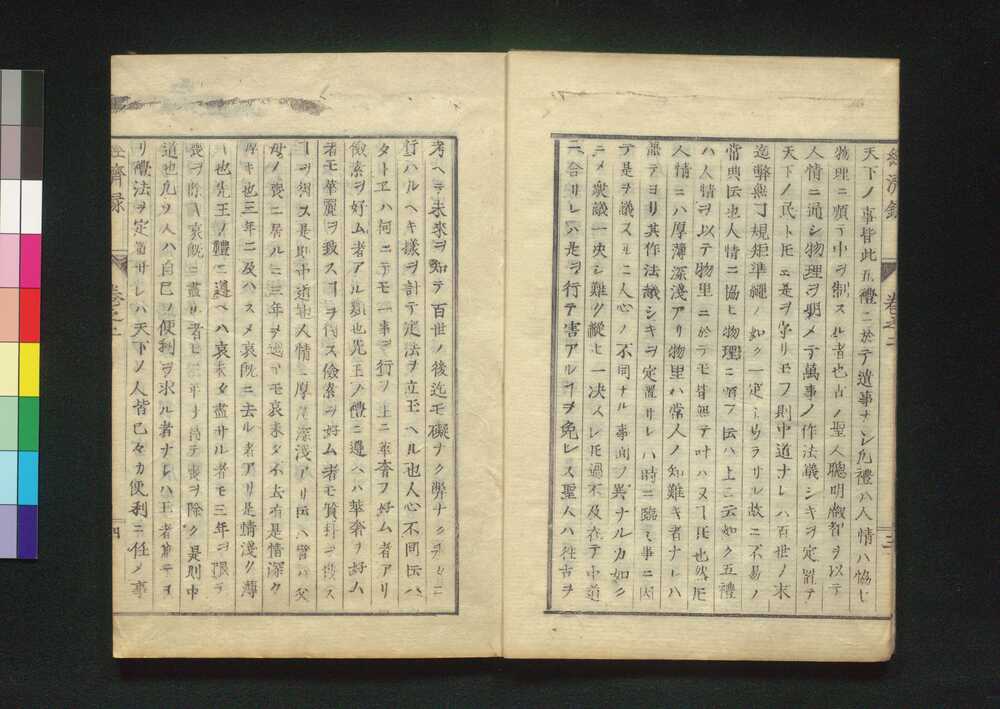 經濟錄 卷之二 三
天下ノ事皆此五禮ニ於テ遺事ナシ凡禮ハ人情ニ協ヒ
物理ニ順テ中ヲ制スル者也古ノ聖人聰明叡智ヲ以テ
人情ニ通シ物理ヲ明メテ萬事ノ作法儀シキヲ定置テ
天下ノ民トモニ是ヲ守リ玉フ則中道ナレハ百世ノ末
迄弊無ク規矩準繩ノ如ク一定シテカワラサル故ニ不易ノ
常典ト云也人情ニ協ヒ物理ニ順フト云ハ上ニ云如ク五禮
ハ人情ヲ以テ物理ニ於テモ皆無テ叶ハヌ也然トモ
人情ニハ厚薄深淺アリ物理ハ常人ノ知難キ者ナレハ
誰テヨリ其作法儀シキヲ定置サレハ時ニ臨ミ事ニ因
テ是ヲ議スルニ人心ノ不同ナル事面ノ異ナルカ如シ
ニメ衆議一決シ難ク縱ヒ一決スレトモ過不及在テ中道
ニ合サレハ是ヲ行テ害アルヿヲ免レス聖人ハ往古ヲ
考ヘテ未來ヲ知テ百世ノ後迄モ礙ナク弊ナク
行ハルヘキ樣ヲ計テ定法ヲ立玉ヘル也人心不同ト云ハ
タトヱハ何ニテモ一事ヲ行フ上ニ華奢ヲ好ム者アリ
儉素ヲ好ム者アル類也先王ノ禮ニ遵ヘハ華奢ヲ好ム
者モ華麗ヲ致スヿヲ得ス儉素ヲ好ム者モ質朴ヲ致ス
ヿヲ得ス是則中道也人情ニ厚薄深淺アリト云ハ譬ハ父
母ノ喪ニ居ルニ三年ヲ過テモ哀未タ不去有是情深ク
厚キ也三年ニ及ハスメ哀既ニ去ル者アリ是情淺ク薄
キ也先王ノ禮ニ遵ヘハ哀未タ盡サル者モ三年ヲ限テ
喪ヲ除ク哀既ニ盡ル者モ三年ヲ待テ喪ヲ除ク是則中
道也凡ソ人ハ自己ノ便利ヲ求ル者ナレハ王者
リ禮法ヲ定置サレハ天下ノ人皆己々カ便利ニ任ノ事
經濟錄 卷之二 四